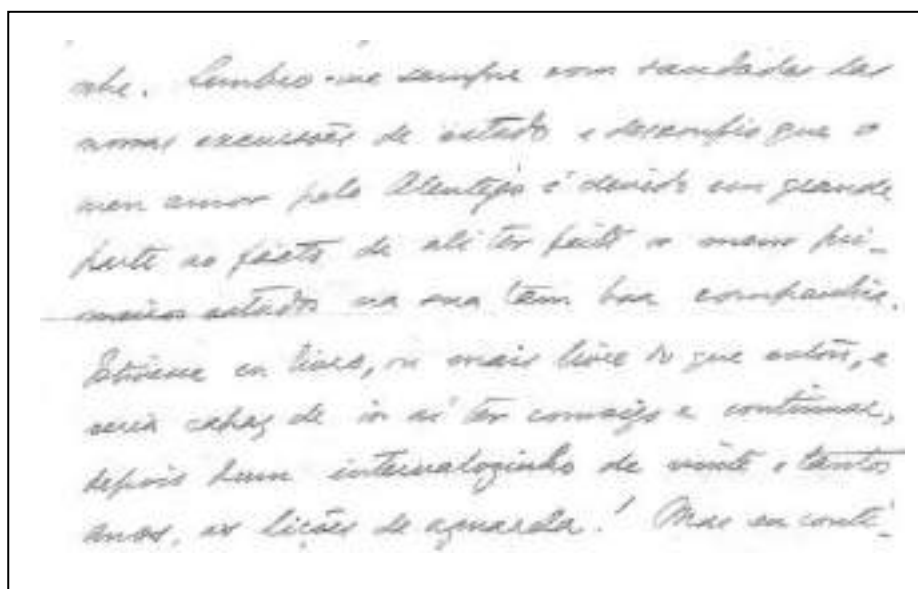 nhe. Lembro-me sempre com saudades das
nossas excursões de estudo e desconfio que o
meu amor pelo Alentejo é devido em grande
parte ao facto de ali ter feito o meus pri-
meiros estudos na sua tam boa companhia.
Estivesse eu livre, ou mais livre do que estou, e
seria capaz de ir aí ter comsigo e continuar,
depois dum intervalozinho de vinte e tantos
anos, as lições de aguarela! Mas eu conti-